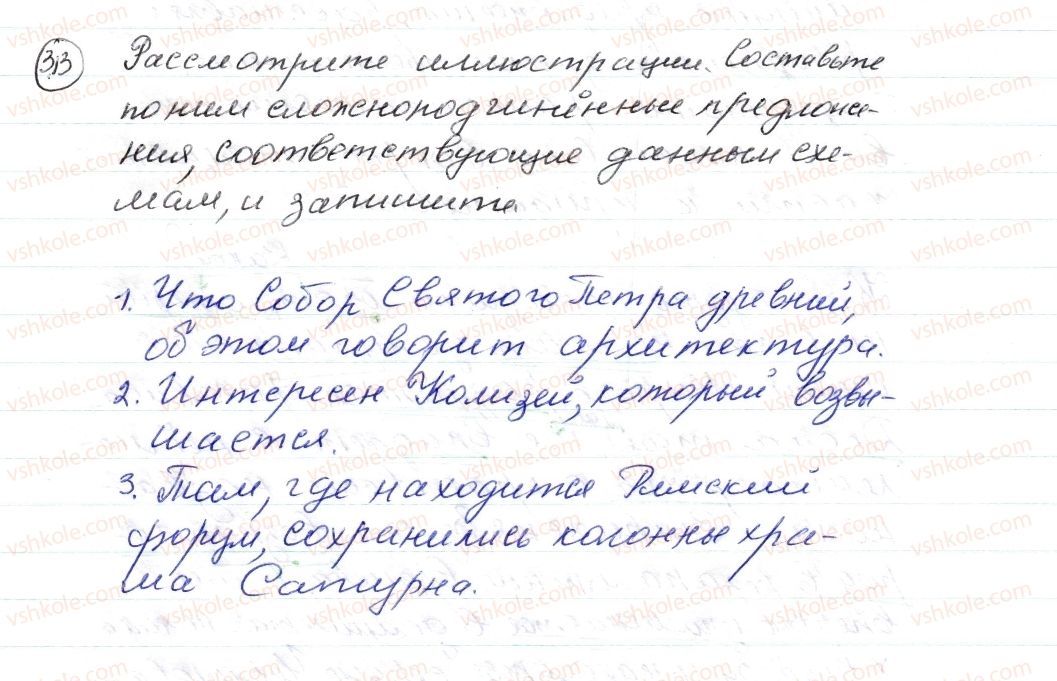 33 Рассмотрите иллюстрации. Составьте
по ним сложноподчинённые предложе-
ния, соответствующие данным схе-
мам, и запишите.
1. Что Собор Святого Петра древний,
об этом говорит архитектура.
2. Интересен Колизей, который возвы-
шается.
3. Там, где находится Римский
форум, сохранились колонны хра-
ма Сатурна.